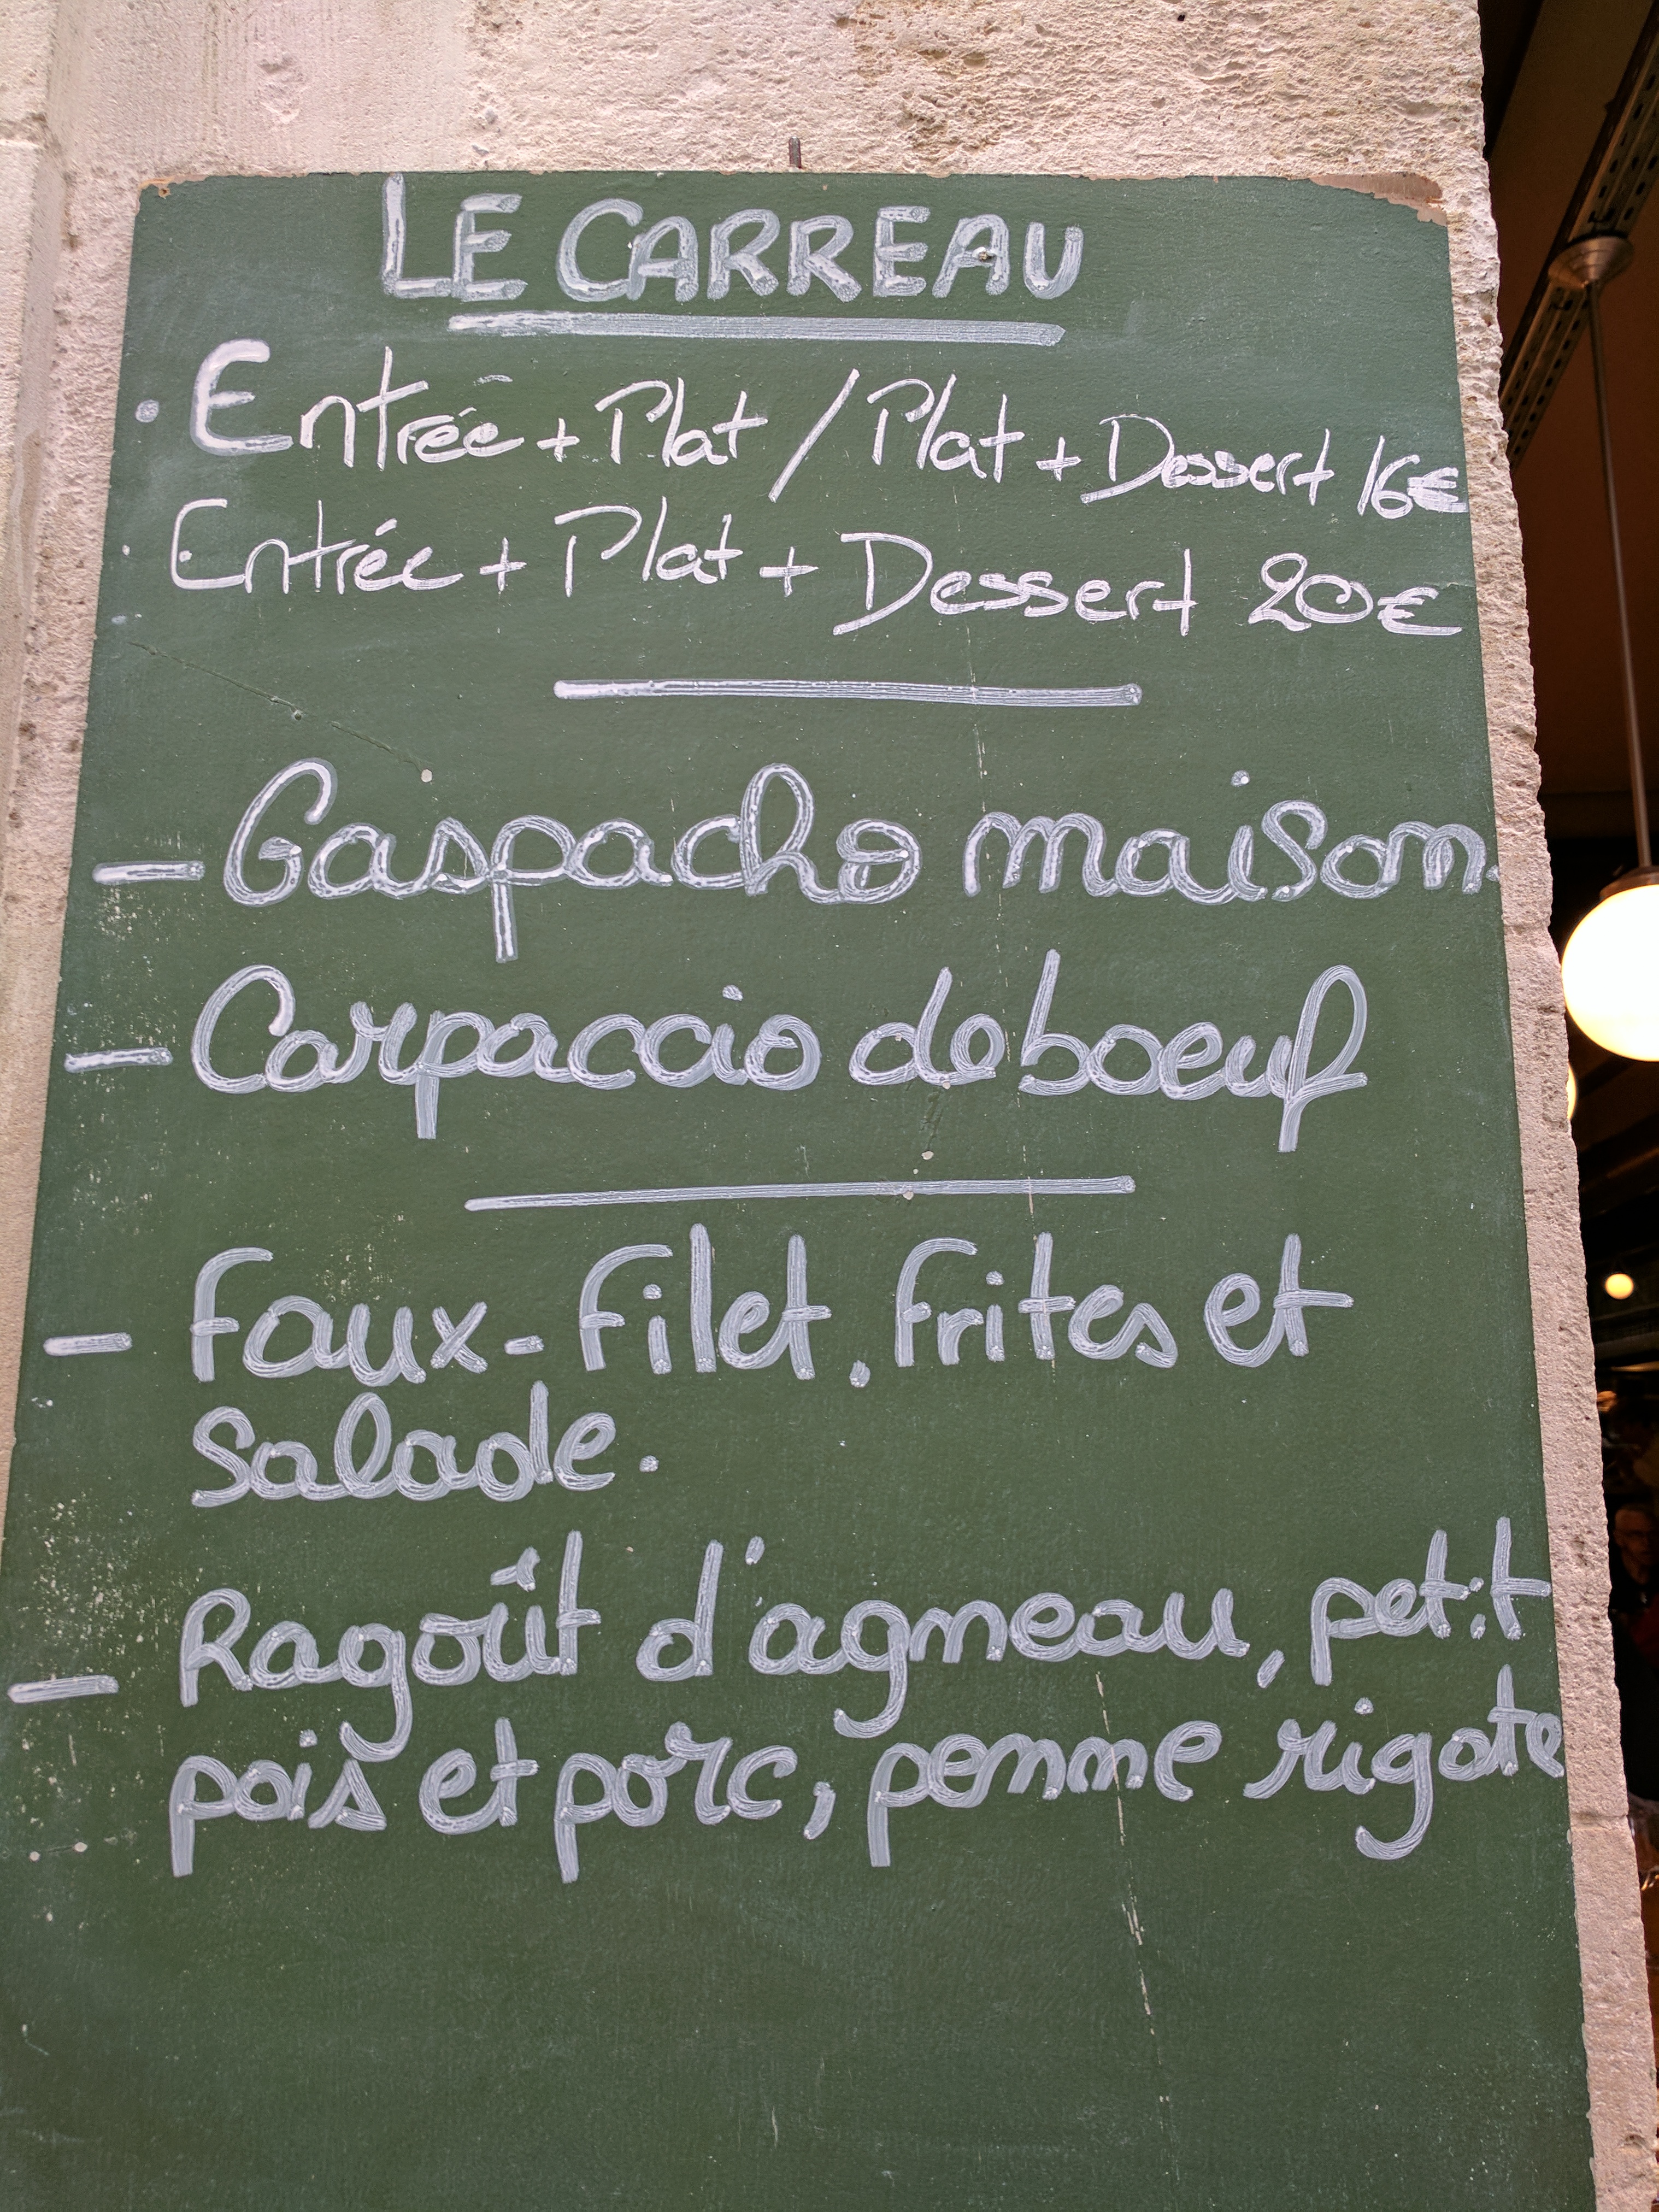 LE CARREAU
Entrée + Plat / Plat + Dessert 16€
Entrée + Plat + Dessert 20€
- Gaspacho maison.
- Carpaccio de boeuf
- Faux-Filet, Frites et
Salade.
- Ragoût d'agneau, petit
pois et porc, penne rigate